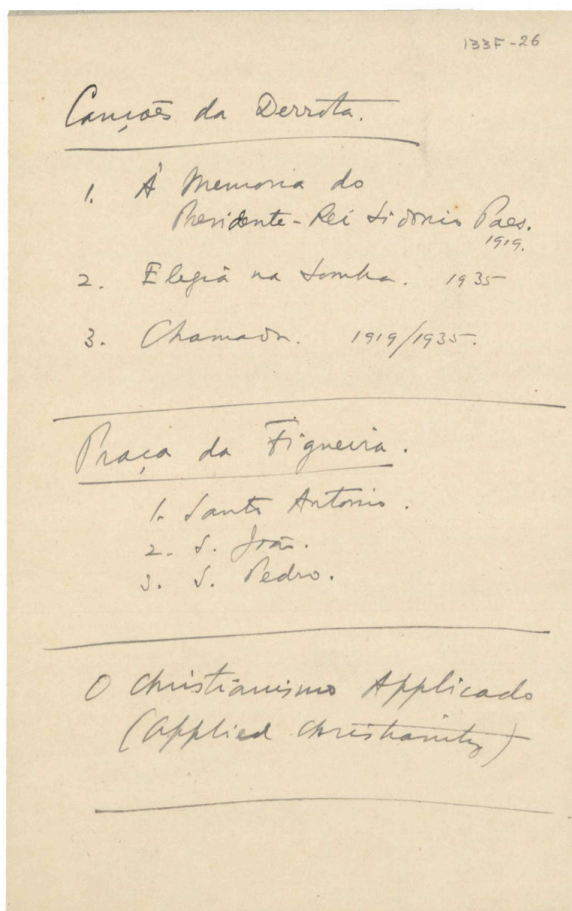 133F-26
Canções da Derrota.
1. À Memoria do
Presidente-Rei Sidonio Paes.
1919.
2. Elegia na Sombra. 1935
3. Chamada. 1919/1935.
Praça da Figueira.
1. Santo Antonio.
2. S. João.
3. S. Pedro.
O Christianismo Applicado
(Applied Christianity)